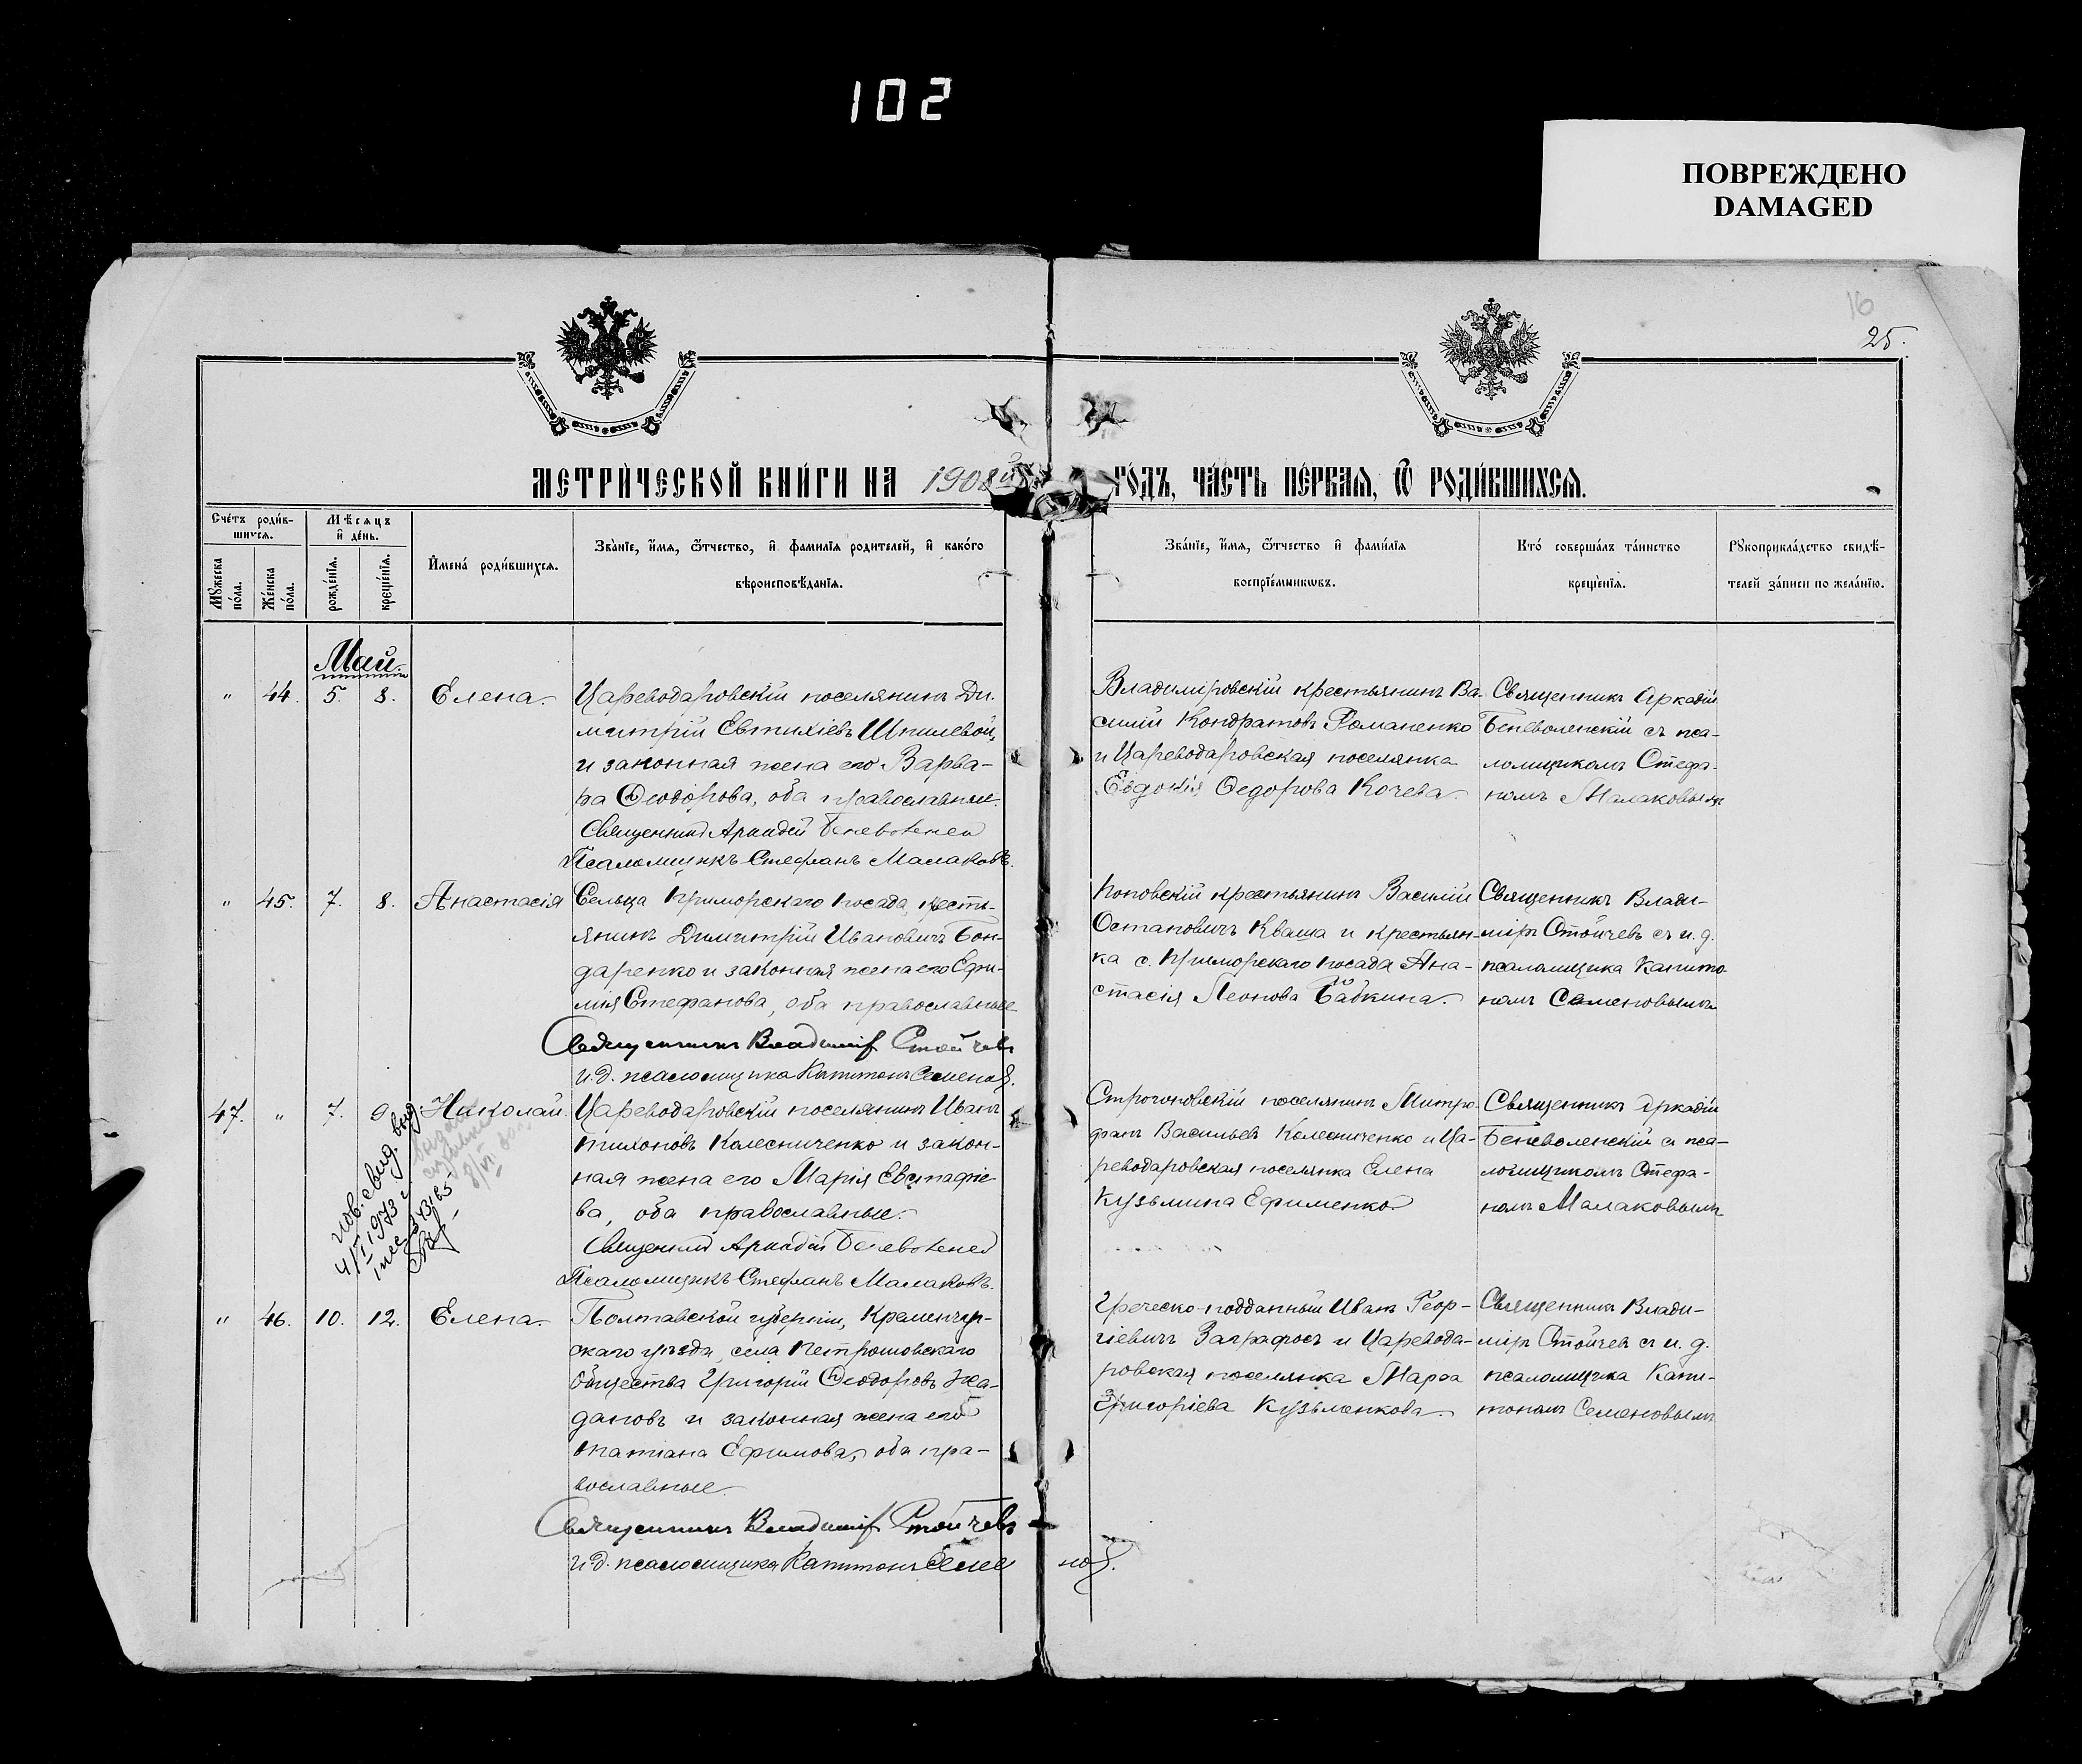 102
ПОВРЕЖДЕНО
DAMAGED
16
25.
МЕТРИ́ЧЕСКОЙ КНИ́ГИ НА 1908й ГО́ДЪ, ЧА́СТЬ ПЕ́РВАЯ, Ѿ РОДИ́ВШИХСѦ.
Сче́тъ роди́в-
шихсѧ.
Мѣсѧцъ
и҆ де́нь.
Мꙋ́жеска по́ла.
Же́нска по́ла.
рожде́нїѧ.
креще́нїѧ.
И҆мена̀ роди́вшихсѧ.
Зва́нїе, и҆́мѧ, ѻ҆́тчество, и҆ фами́лїѧ роди́телей, и҆ како́гѡ
вѣроисповѣ́данїѧ.
Зва́нїе, и҆́мѧ, ѻ҆́тчество и҆ фами́лїѧ
воспрїе́мникѡвъ.
Кто̀ соверша́лъ та́инство
креще́нїѧ.
Рꙋкоприкла́дство свидѣ́-
телей за́писи по жела́нїю.
Май.
" 44. 5. 8. Елена.
Цареводаровскій поселянинъ Ди-
митрій Евтихіевъ Шпилевой,
и законная жена его Варва-
ра Ѳеодорова, оба православные.
Священникъ Аркадій Беневоленск
Псаломщикъ Стефанъ Малаковъ.
Владиміровскій крестьянинъ Ва-
силій Кондратовъ Романенко
и Цареводаровская поселянка
Евдокія Ѳедорова Кочева.
Священникъ Аркадій
Беневоленскій съ пса-
ломщикомъ Стефа-
номъ Малаковымъ
" 45. 7. 8. Анастасія
Сельца Приморскаго посада, кресть-
янинъ Димитрій Ивановичъ Бон-
даренко и законная жена его Ефи-
мія Стефанова, оба православные
Священникъ Владиміръ Стойчевъ
и.д. псаломщика Капитонъ Семеновъ.
Поповскій крестьянинъ Василій
Остаповичъ Кваша и крестьян-
ка с. Приморскаго посада Ана-
стасія Леонова Бабкина.
Священникъ Влади-
міръ Стойчевъ съ и. д.
псаломщика Капито-
номъ Семеновымъ
47. " 7. 9. Николай.
Цареводаровскій поселянинъ Иванъ
Тихоновъ Колесниченко и закон-
ная жена его Марія Евстафіе-
ва, оба православные.
Священникъ Аркадій Беневоленск
Псаломщикъ Стефанъ Малаковъ.
Строгоновскій поселянинъ Митро-
фанъ Васильевъ Колесниченко и Ца-
реводаровская поселянка Елена
Кузьмина Ефименко.
Священникъ Аркадій
Беневоленскій съ пса-
ломщикомъ Стефа-
номъ Малаковымъ
пов. свид. выд.
4/I 1973 г
" 46. 10. 12. Елена.
Полтавской губерніи, Кременчуг-
скаго уѣзда, села
общества Григорій Ѳеодоровъ Жа-
дановъ и законная жена его
Татіана Ефимова, оба пра-
вославные.
Священникъ Владиміръ Стойчевъ
и.д. псаломщика Капитонъ Семеновъ.
Греческо-подданный Иванъ Геор-
гіевичъ Заграфосъ и Царевода-
ровская поселянка Марѳа
Григоріева Кузьменкова.
Священникъ Влади-
міръ Стойчевъ съ и. д.
псаломщика Капи-
тономъ Семеновымъ